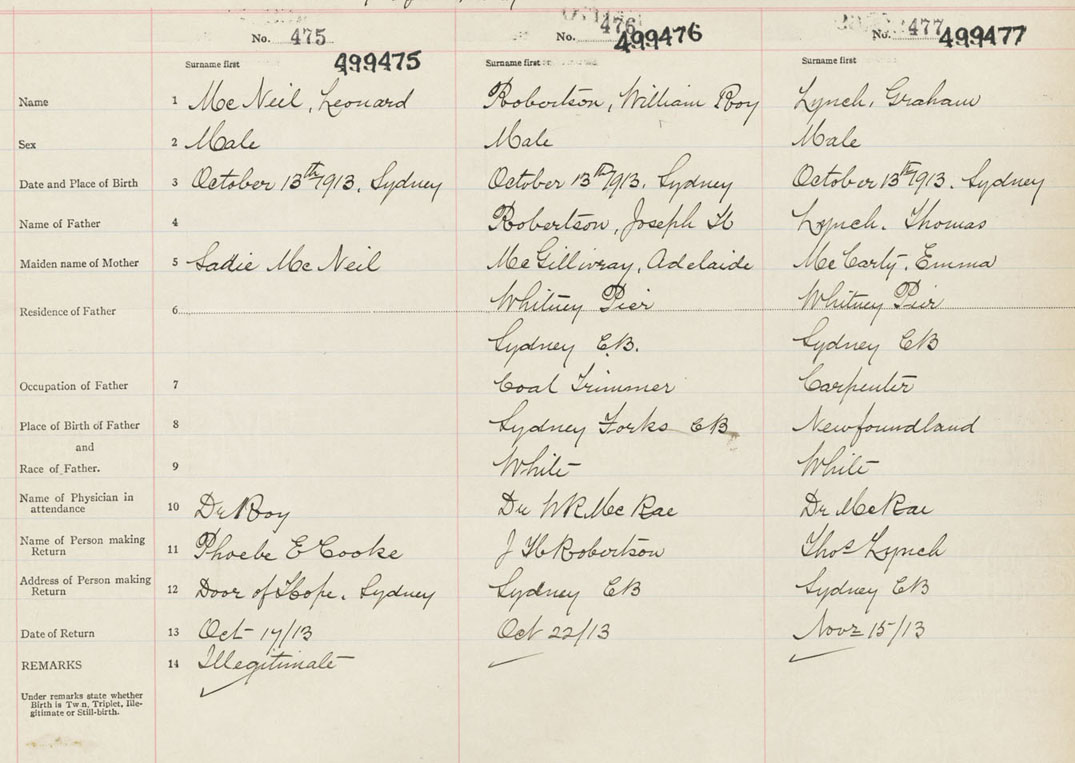 No. 475 No. 476 No. 477
499475 499476 499477
Surname first Surname first Surname first
Name 1 McNeil, Leonard Robertson, William Roy Lynch, Graham
Sex 2 Male Male Male
Date and Place of Birth 3 October 13th 1913, Sydney October 13th 1913, Sydney October 13th 1913. Sydney
Name of Father 4 Robertson, Joseph H Lynch. Thomas
Maiden name of Mother 5 Sadie McNeil McGillivray, Adelaide McCarty, Emma
Residence of Father 6 Whitney Pier Whitney Pier
Sydney C.B. Sydney CB
Occupation of Father 7 Coal Trimmer Carpenter
Place of Birth of Father 8 Sydney Forks CB Newfoundland
and
Race of Father. 9 White White
Name of Physician in
attendance 10 Dr Roy Dr WR McRae Dr McRae
Name of Person making
Return 11 Phoebe E Cooke J H Robertson Thos Lynch
Address of Person making
Return 12 Door of Hope. Sydney Sydney CB Sydney CB
Date of Return 13 Oct 17/13 Oct 22/13 Novr 15/13
REMARKS 14 Illegitimate
Under remarks state whether
Birth is Tw n, Triplet, Ille-
gitimate or Still-birth.